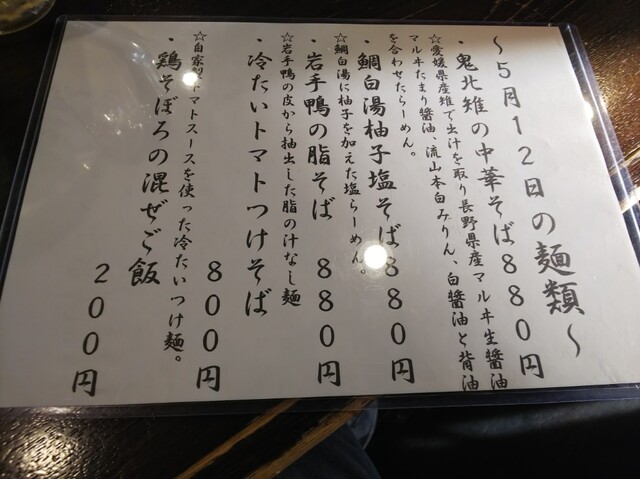 ～５月１２日の麺類～
・鬼北雉の中華そば８８０円
☆愛媛県産雉で出汁を取り長野県産マルヰ生醤油
マルヰたまり醤油、流山本白みりん、白醤油と背油
を合わせたらーめん。
・鯛白湯柚子塩そば８８０円
☆鯛白湯に柚子を加えた塩らーめん。
・岩手鴨の脂そば　８８０円
☆岩手鴨の皮から抽出した脂の汁なし麺
・冷たいトマトつけそば
８００円
☆自家製トマトスースを使った冷たいつけ麺。
・鶏そぼろの混ぜご飯
２００円